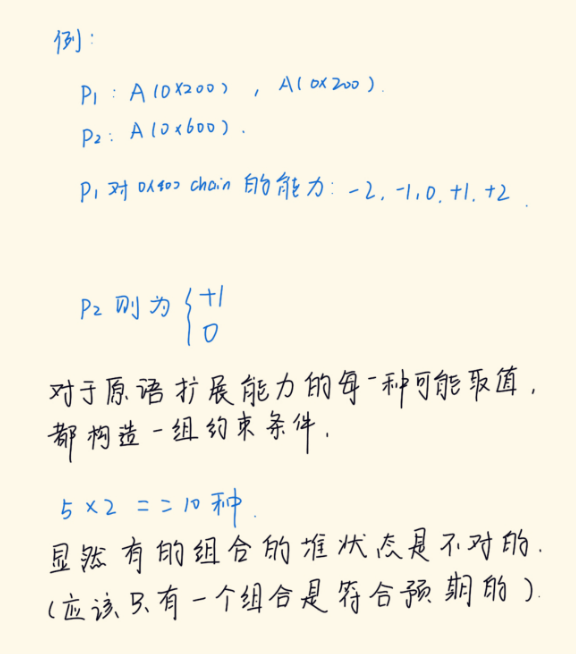 例：
P1：A(0x200)，A(0x200).
P2：A(0x600).
P1 对 0x400 chain 的能力：-2, -1, 0, +1, +2.
P2 则为 { +1
0
对于原语扩展能力的每一种可能取值，
都构造一组约束条件.
5 × 2 == 10 种.
显然有的组合的堆状态是不对的.
(应该只有一个组合是符合预期的).